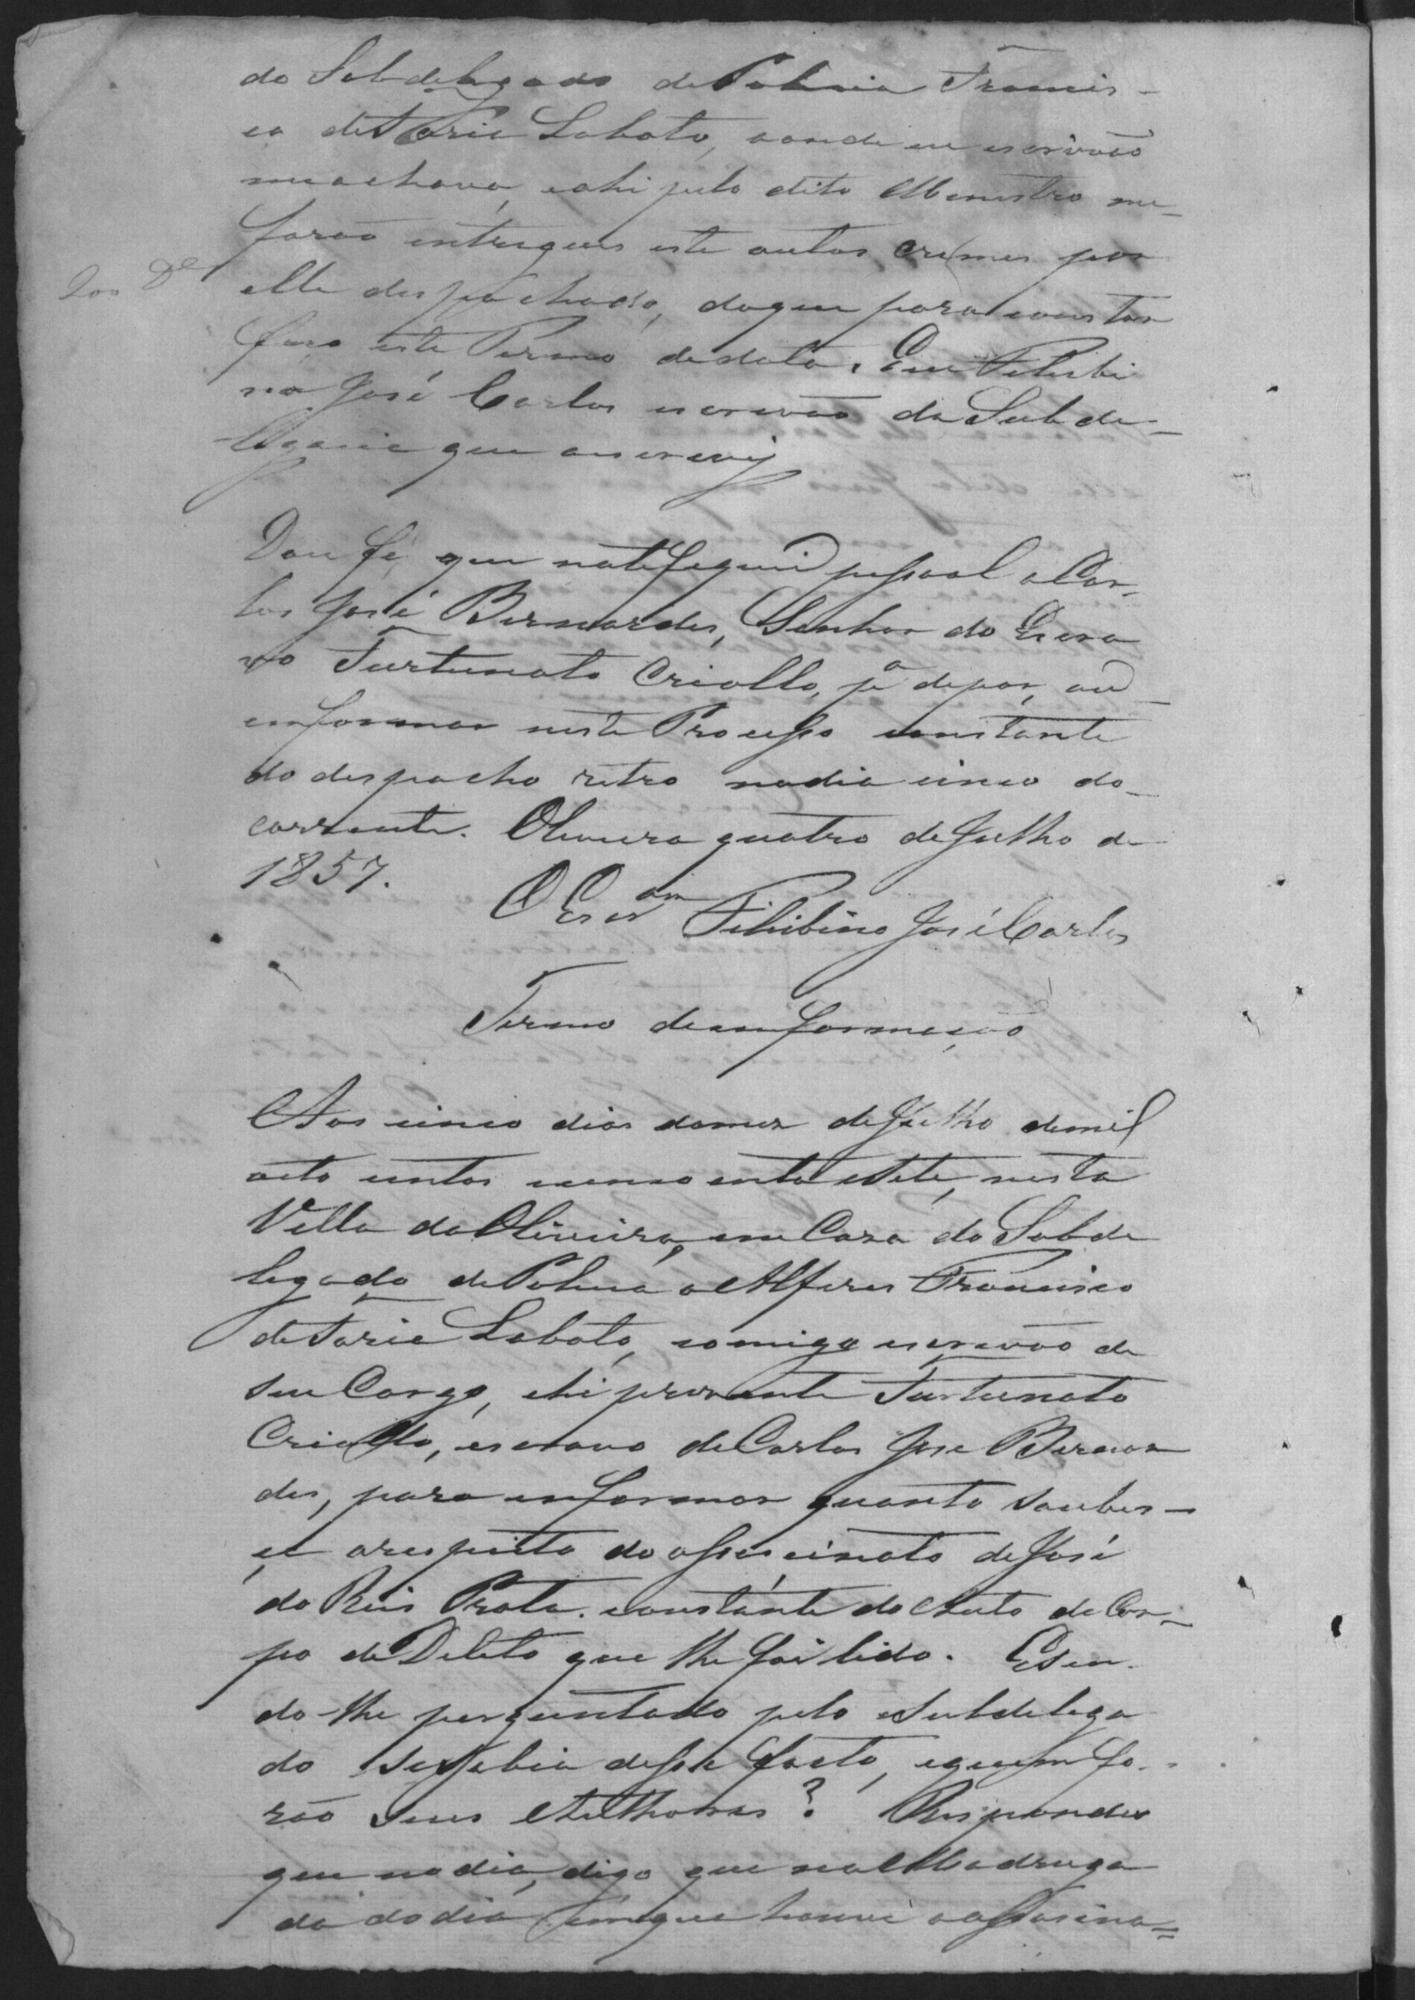 do Subdelegado de Policia Francis-
co de Faria Lobato, aonde eu escrivão
me achava, e ahi pelo dito Menistro me
forão entregues este autos crimes por
elle despachado, do que para constar
faço este Termo de data. Eu Felisbi
no José Carlos escrevão da Subde-
legacia que escrevij
Dou fé que notefiquei pessoal a Car-
los José Bernardes, Senhor do Escra
vo Furtunato Criollo, pª depor, ou
enformar neste Processo constante
do despacho retro no dia cinco do
corrente. Oliveira quatro de Julho de
1857.
O Escrᵃᵐ Felisbino José Carlos
Termo de enformação
Aos cinco dias do mez de Julho de mil
oito centos cincoenta e sete, nesta
Villa da Oliveira, em Caza do Subde
legado de Policia o Alferes Francisco
de Faria Lobato, comigo escrevão de
seu Cargo, ahi prezente Furtunato
Criollo, escravo de Carlos Jose Bernar
des, para enformar quanto soubes-
se a respeito do assascinato de José
do Reis Prata. constánte do Auto de Cor-
po de Delito que lhe foi lido. E sen-
do-lhe perguntado pelo Subdelega
do se sabia desse facto, e quem fo-
rão seus Authores? Respondeo
que no dia, digo que na Madruga
da do dia em que houve o assasina=